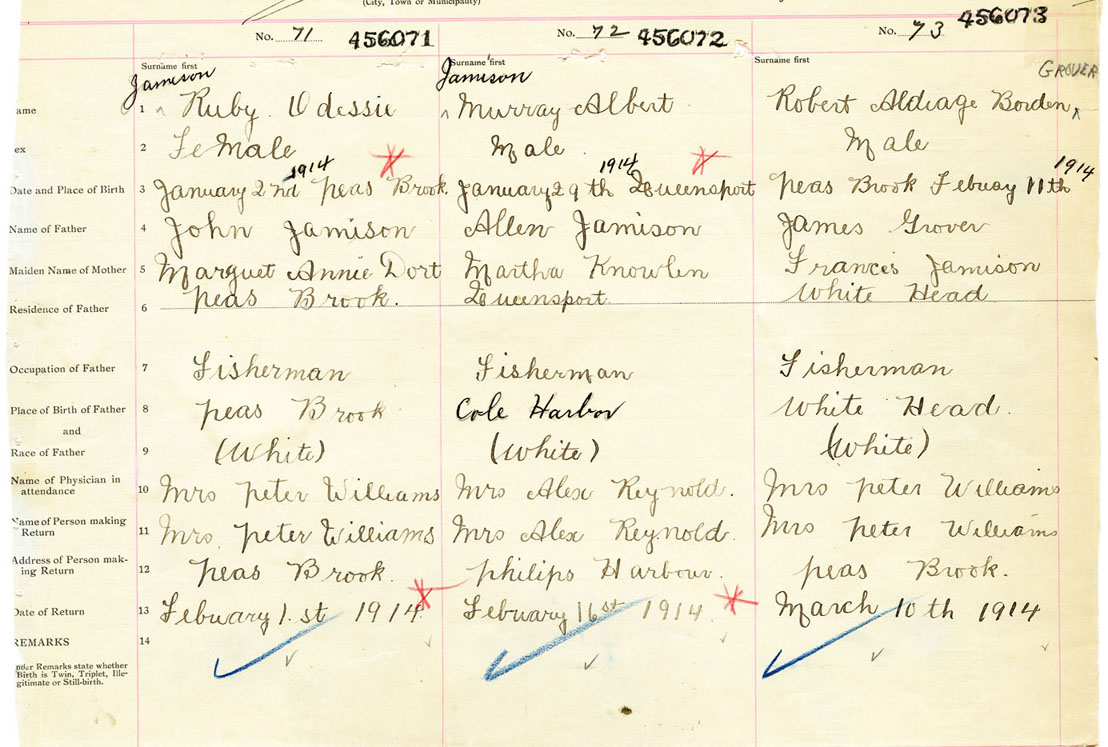 (City, Town or Municipality)
No. 71 456071 No. 72 456072 No. 73 456073
Surname first Surname first Surname first
Jamison Jamison GROVER
ame 1 Ruby Odessie Murray Albert Robert Aldiage Borden
ex 2 FeMale Male Male
1914 1914 1914
Date and Place of Birth 3 January 2nd peas Brook January 29th Queensport peas Brook Febuay 11th
Name of Father 4 John Jamison Allen Jamison James Grover
Maiden Name of Mother 5 Marguet Annie Dort Martha Knowlen Frances Jamison
Residence of Father 6 peas Brook. Queensport. White Head
Occupation of Father 7 Fisherman Fisherman Fisherman
Place of Birth of Father 8 peas Brook Cole Harbor White Head.
and
Race of Father 9 (White) (White) (White)
Name of Physician in
attendance 10 Mrs peter Williams Mrs Alex Reynold. Mrs peter Williams
Name of Person making
Return 11 Mrs. peter Williams Mrs Alex Reynold. Mrs peter Williams
Address of Person mak-
ing Return 12 peas Brook. philips Harbour. peas Brook.
Date of Return 13 Febuary 1.st 1914 Febuary 16st 1914 March 10th 1914
REMARKS 14
nder Remarks state whether
Birth is Twin, Triplet, Ille-
gitimate or Still-birth.